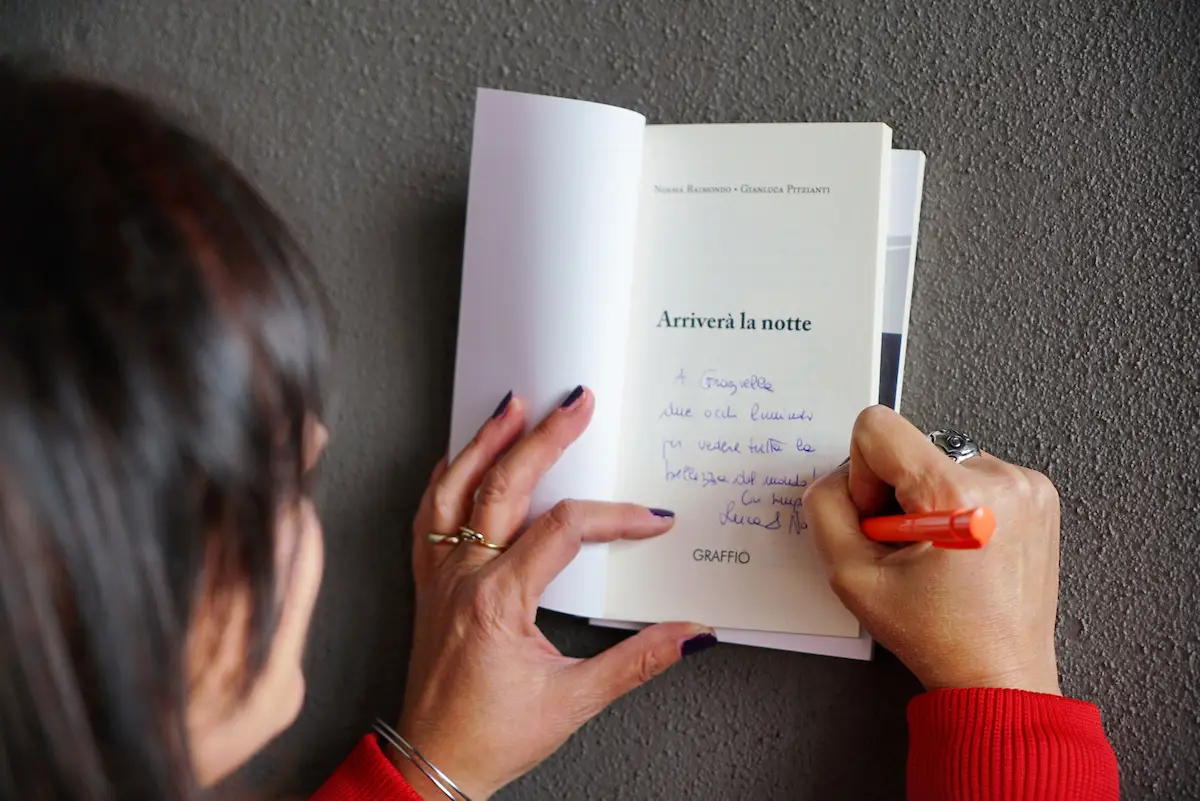 Norma Raimondo • Gianluca Pitzianti
Arriverà la notte
A Graziella
due occhi luminosi
per vedere tutta la
bellezza del mondo!
Luca &
GRAFFIO